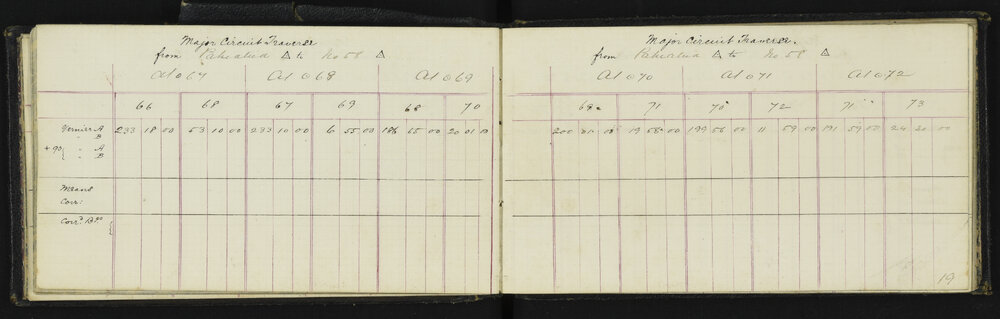 Major Circuit Traverse
from Pahiatua △ to No 58 △
At o 67 At o 68 At o 69
66 68 67 69 68 70
Vernier A 233 18 00 53 10 00 233 10 00 6 55 00 186 55 00 20 01
" B
+ 90 { " A
" B
Means
Corr:
Corrd Bgs
Major Circuit Traverse.
from Pahiatua △ to No 58 △
At o 70 At o 71 At o 72
69 71 70 72 71 73
200 01 19 58 00 199 58 00 11 59 00 191 59 00 24 20 00
19